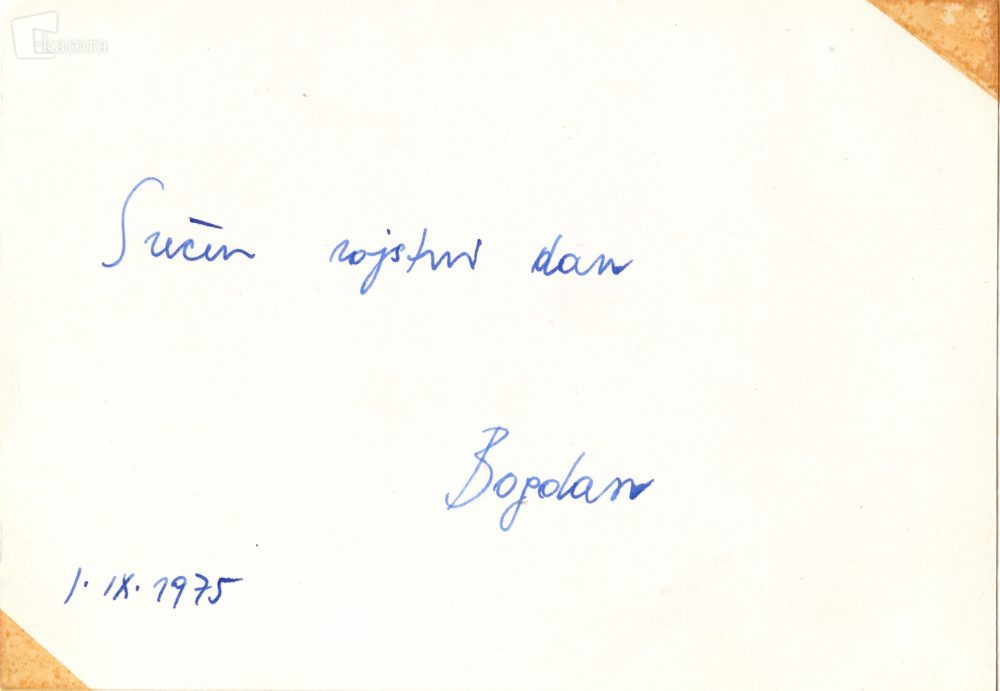 kamra
Srečen rojstni dan
Bogdan
1. IX. 1975